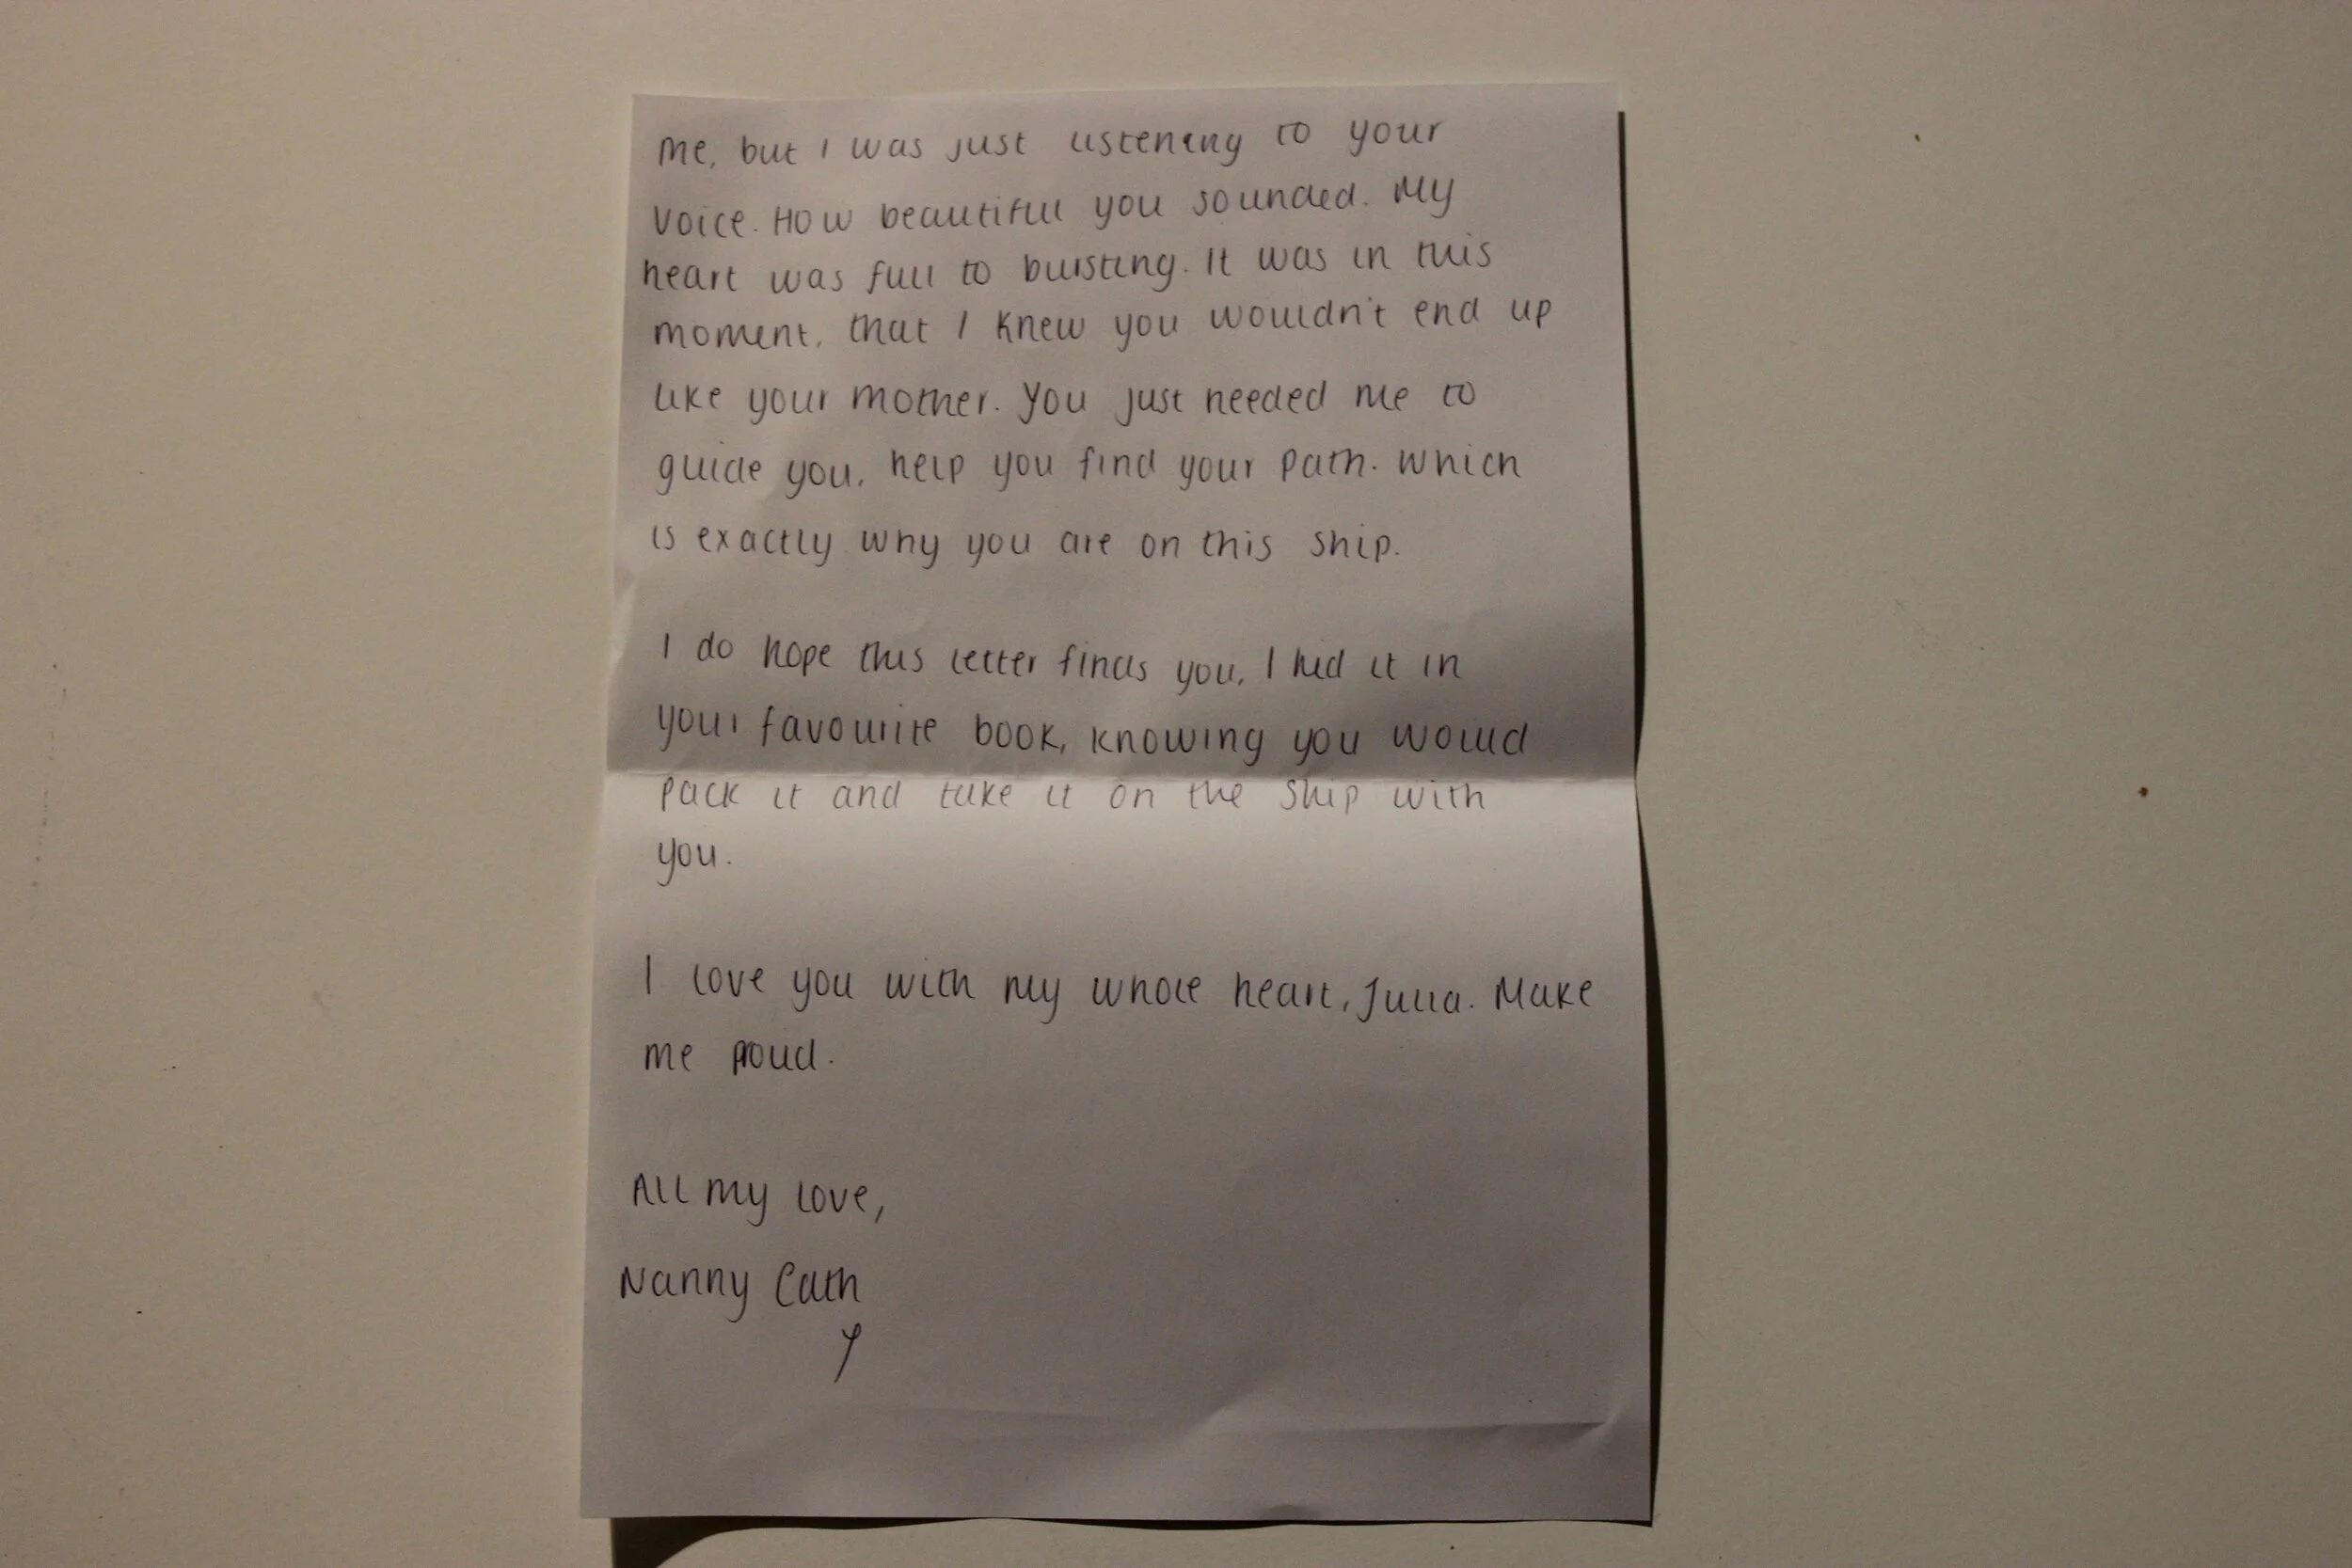 me, but I was just listening to your
voice. How beautiful you sounded. My
heart was full to bursting. It was in this
moment, that I knew you wouldn't end up
like your mother. You just needed me to
guide you, help you find your path. Which
is exactly why you are on this ship.
I do hope this letter finds you, I hid it in
your favourite book, knowing you would
pack it and take it on the ship with
you.
I love you with my whole heart, Julia. Make
me proud.
All my love,
Nanny Cath